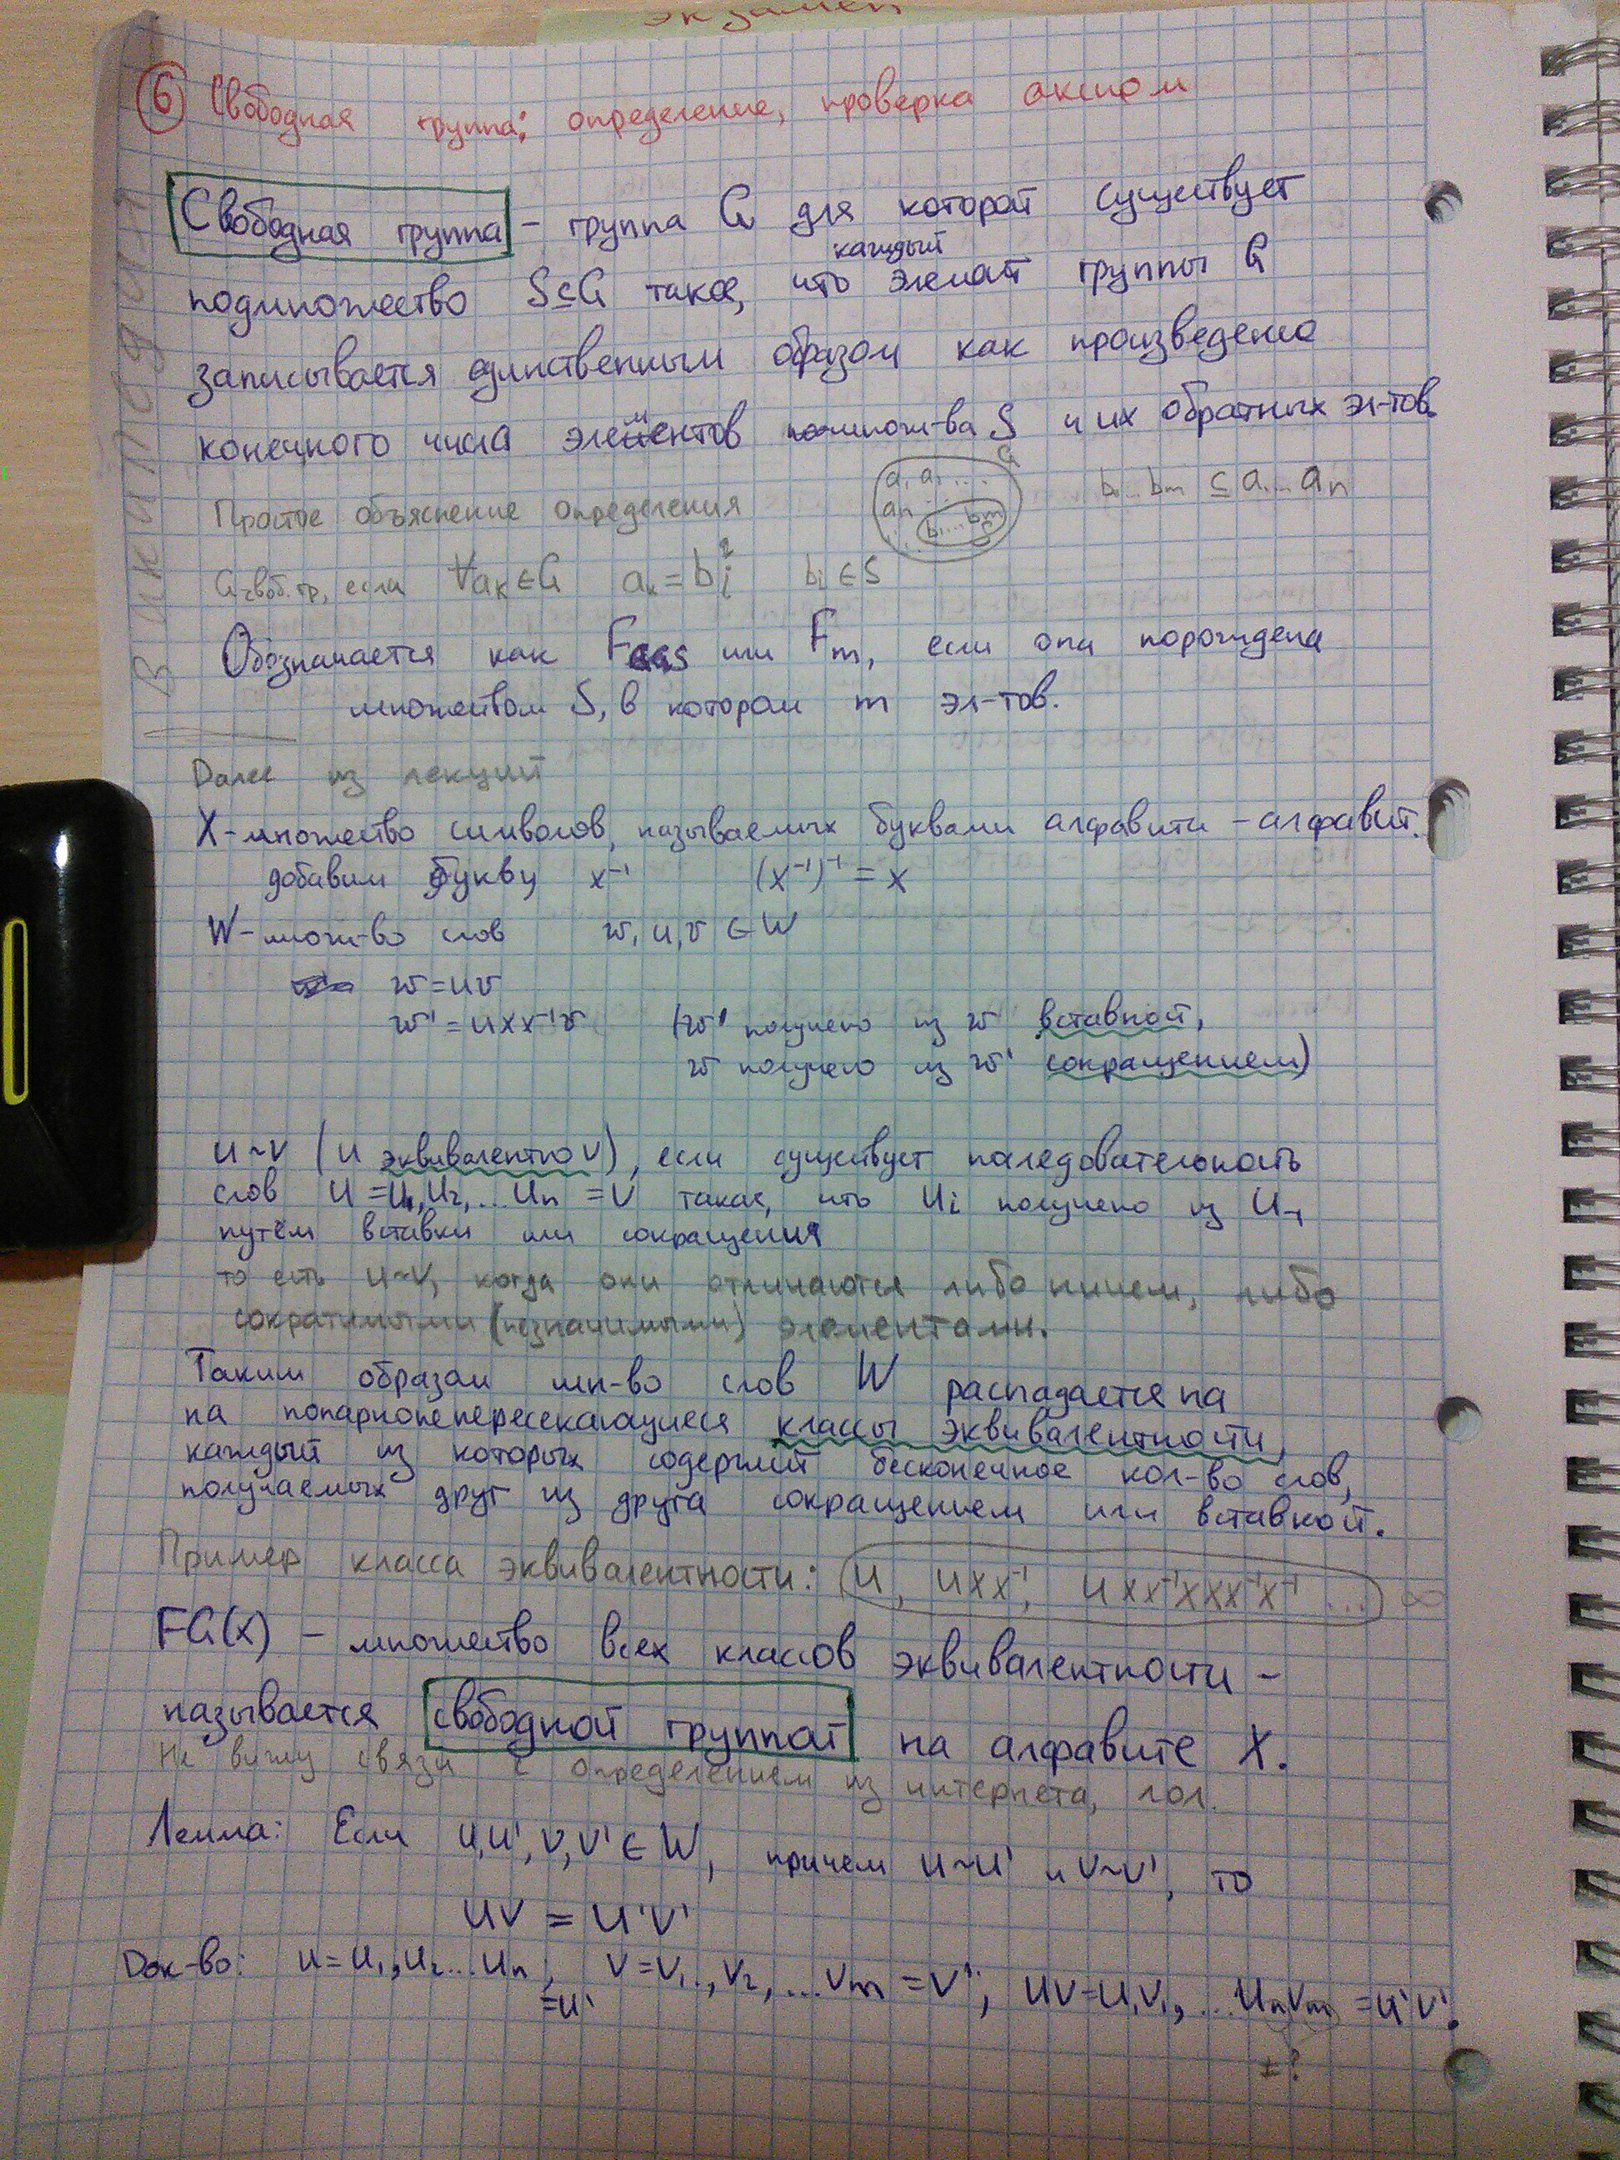 экзамен
6 Свободная группа: определение, проверка аксиом
Википедия
Свободная группа - группа G для которой существует
подмножество S⊆G такое, что каждый элемент группы G
записывается единственным образом как произведение
конечного числа элементов множ-ва S и их обратных эл-тов.
Простое объяснение определения
G
a₁ a₂ ...
aₙ ...
b₁...bₘ
S
b₁...bₘ ⊆ a₁...aₙ
G-своб.гр, если ∀aₖ∈G aₖ = bᵢ bᵢ∈S
Обозначается как Fs или Fm, если она порождена
множеством S, в котором m эл-тов.
Далее из лекций
X-множество символов, называемых буквами алфавита - алфавит.
добавим букву x⁻¹ (x⁻¹)⁻¹ = x
W-множ-во слов w, u, v ∈ W
w = uv
w' = uxx⁻¹v (w' получено из w вставкой,
w получено из w' сокращением)
u~v (u эквивалентно v), если существует последовательность
слов u = u₁, u₂, ... uₙ = v такая, что uᵢ получено из uᵢ₋₁
путём вставки или сокращения
то есть u~v, когда они отличаются либо ничем, либо
сократимыми (незначимыми) элементами.
Таким образом мн-во слов W распадается на
на попарнонепересекающиеся классы эквивалентности,
каждый из которых содержит бесконечное кол-во слов,
получаемых друг из друга сокращением или вставкой.
Пример класса эквивалентности: u, uxx⁻¹, uxx⁻¹xxx⁻¹x⁻¹ ... ∞
FG(x) - множество всех классов эквивалентности -
называется свободной группой на алфавите X.
Не вижу связи с определением из интернета, лол.
Лемма: Если u,u',v,v' ∈ W, причем u~u' и v~v', то
uv = u'v'
Док-во: u = u₁, u₂ ... uₙ = u'; v = v₁, v₂, ... vₘ = v'; uv = u₁v₁, ... uₙvₘ = u'v'.
±?